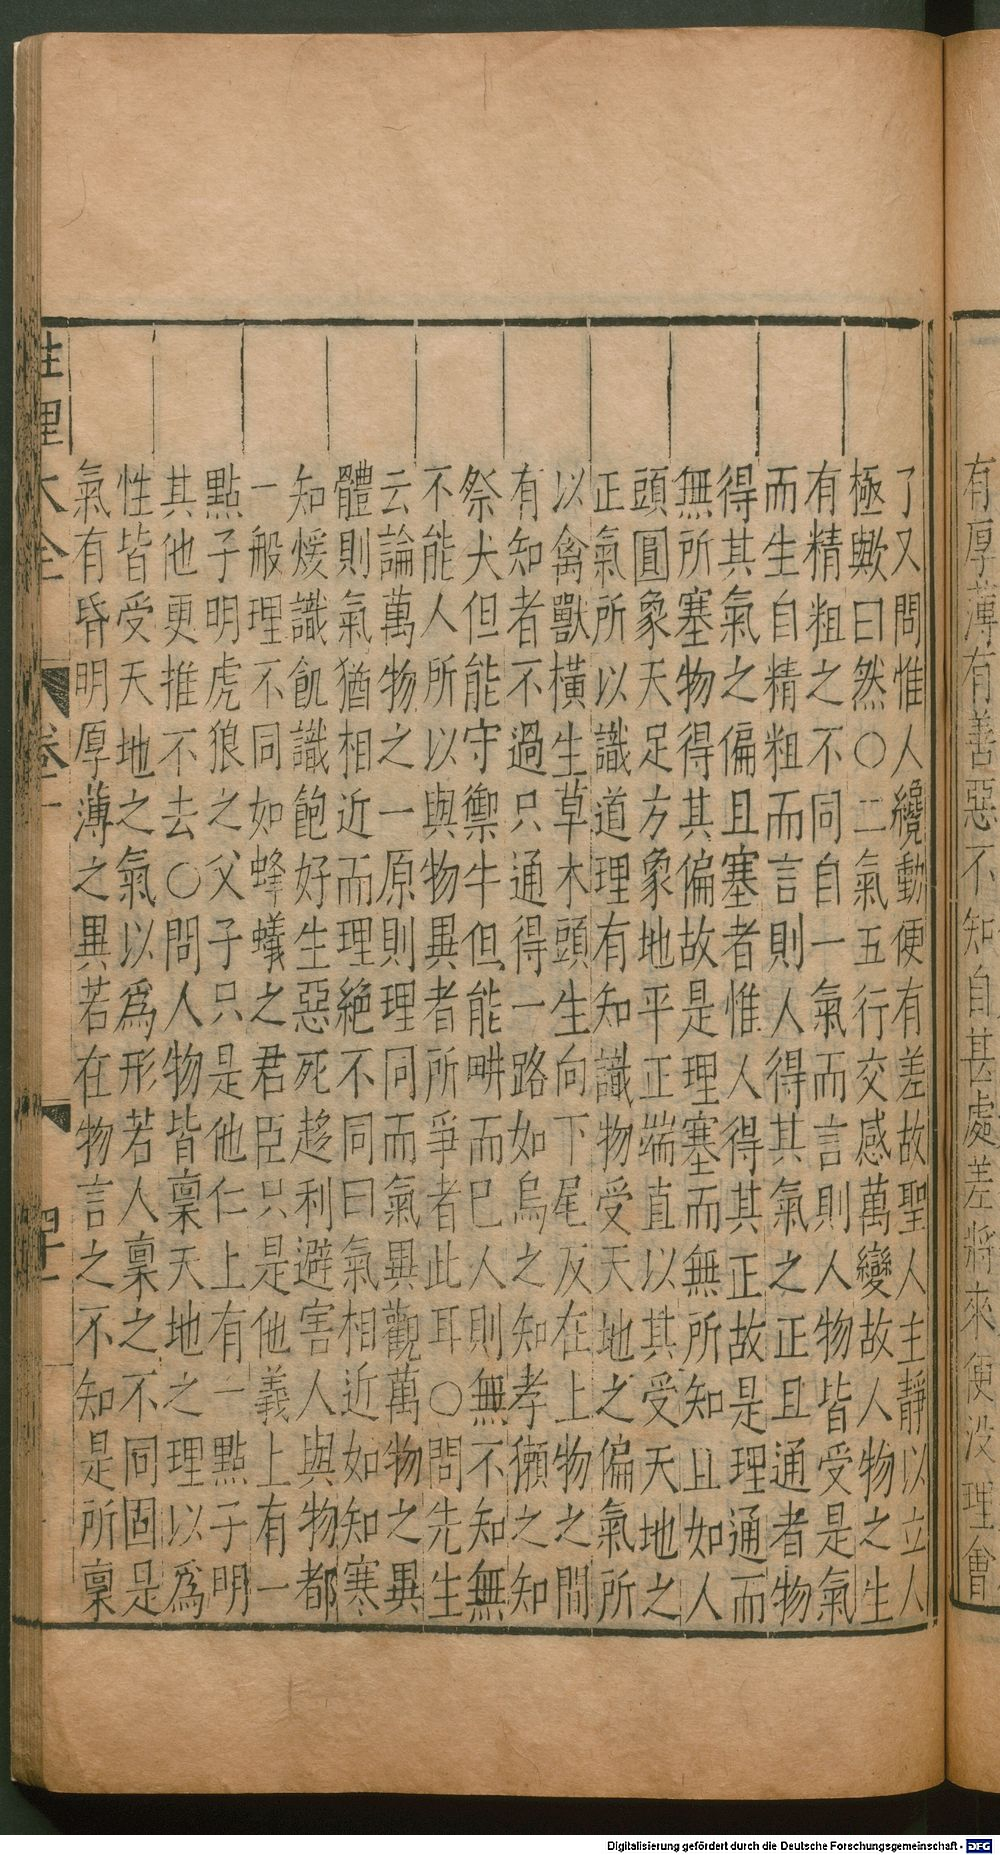 有厚薄有善惡不知自甚處差將來便没理會
了又問惟人纔動便有差故聖人主靜以立人
極歟曰然○二氣五行交感萬變故人物之生
有精粗之不同自一氣而言則人物皆受是氣
而生自精粗而言則人得其氣之正且通者物
得其氣之偏且塞者惟人得其正故是理通而
無所塞物得其偏故是理塞而無所知且如人
頭圓象天足方象地平正端直以其受天地之
正氣所以識道理有知識物受天地之偏氣所
以禽獸橫生草木頭生向下尾反在上物之間
有知者不過只通得一路如烏之知孝獺之知
祭犬但能守禦牛但能畊而已人則無不知無
不能人所以與物異者所爭者此耳○問先生
云論萬物之一原則理同而氣異觀萬物之異
體則氣猶相近而理絶不同曰氣相近如知寒
知煖識飢識飽好生惡死趍利避害人與物都
一般理不同如蜂蟻之君臣只是他義上有一
點子明虎狼之父子只是他仁上有一點子明
其他更推不去○問人物皆禀天地之理以爲
性皆受天地之氣以爲形若人禀之不同固是
氣有昏明厚薄之異若在物言之不知是所禀
性理大全
卷
Digitalisierung gefördert durch die Deutsche Forschungsgemeinschaft - DFG